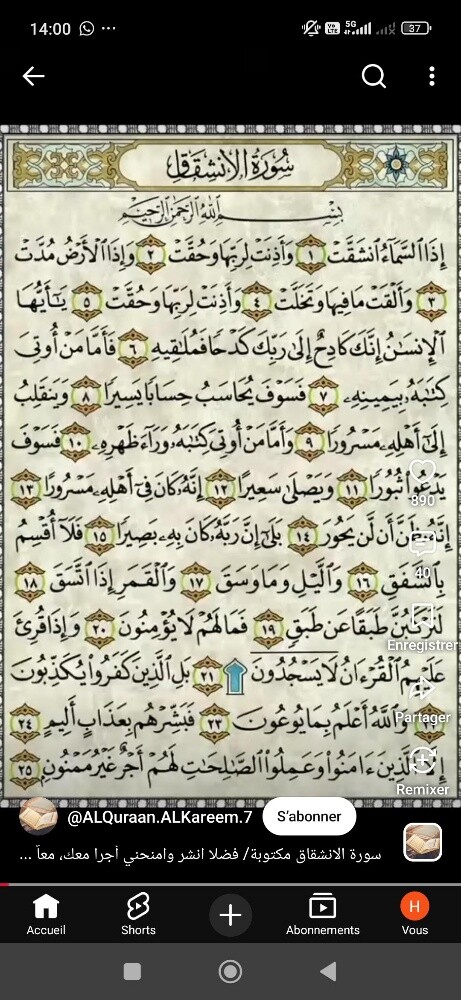 14:00
5G
37
سُورَةُ الِانْشِقَاقِ
بِسْمِ اللَّهِ الرَّحْمَٰنِ الرَّحِيمِ
إِذَا السَّمَاءُ انشَقَّتْ ١ وَأَذِنَتْ لِرَبِّهَا وَحُقَّتْ ٢ وَإِذَا الْأَرْضُ مُدَّتْ
٣ وَأَلْقَتْ مَا فِيهَا وَتَخَلَّتْ ٤ وَأَذِنَتْ لِرَبِّهَا وَحُقَّتْ ٥ يَٰٓأَيُّهَا
الْإِنسَٰنُ إِنَّكَ كَادِحٌ إِلَىٰ رَبِّكَ كَدْحًا فَمُلَٰقِيهِ ٦ فَأَمَّا مَنْ أُوتِىَ
كِتَٰبَهُۥ بِيَمِينِهِۦ ٧ فَسَوْفَ يُحَاسَبُ حِسَابًا يَسِيرًا ٨ وَيَنقَلِبُ
إِلَىٰٓ أَهْلِهِۦ مَسْرُورًا ٩ وَأَمَّا مَنْ أُوتِىَ كِتَٰبَهُۥ وَرَآءَ ظَهْرِهِۦ ١٠ فَسَوْفَ
يَدْعُوا۟ ثُبُورًا ١١ وَيَصْلَىٰ سَعِيرًا ١٢ إِنَّهُۥ كَانَ فِىٓ أَهْلِهِۦ مَسْرُورًا ١٣
إِنَّهُۥ ظَنَّ أَن لَّن يَحُورَ ١٤ بَلَىٰٓ إِنَّ رَبَّهُۥ كَانَ بِهِۦ بَصِيرًا ١٥ فَلَآ أُقْسِمُ
بِالشَّفَقِ ١٦ وَالَّيْلِ وَمَا وَسَقَ ١٧ وَالْقَمَرِ إِذَا اتَّسَقَ ١٨
لَتَرْكَبُنَّ طَبَقًا عَن طَبَقٍ ١٩ فَمَا لَهُمْ لَا يُؤْمِنُونَ ٢٠ وَإِذَا قُرِئَ
عَلَيْهِمُ الْقُرْءَانُ لَا يَسْجُدُونَ ٢١ بَلِ الَّذِينَ كَفَرُوا۟ يُكَذِّبُونَ
٢٢ وَاللَّهُ أَعْلَمُ بِمَا يُوعُونَ ٢٣ فَبَشِّرْهُم بِعَذَابٍ أَلِيمٍ ٢٤
إِلَّا الَّذِينَ ءَامَنُوا۟ وَعَمِلُوا۟ الصَّٰلِحَٰتِ لَهُمْ أَجْرٌ غَيْرُ مَمْنُونٍ ٢٥
890
40
Enregistrer
Partager
Remixer
@ALQuraan.ALKareem.7 S'abonner
سورة الانشقاق مكتوبة/ فضلا انشر وامنحني أجرا معك، معاً ...
Accueil Shorts Abonnements Vous
H